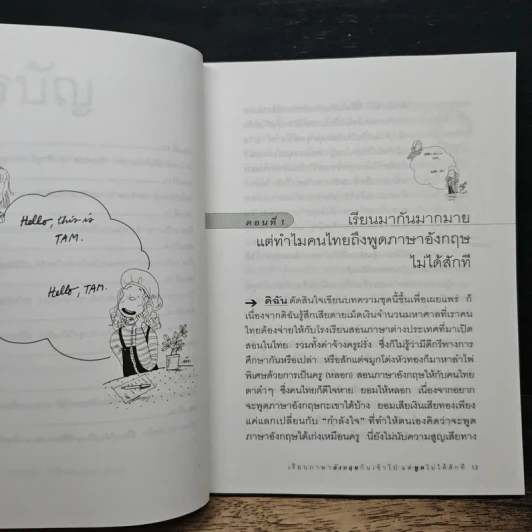 Hello, this is
TAM.
Hello, TAM.
ตอนที่ 1
เรียนมากันมากมาย
แต่ทำไมคนไทยถึงพูดภาษาอังกฤษ
ไม่ได้สักที
→ ดิฉัน ตัดสินใจเขียนบทความชุดนี้ขึ้นเพื่อเผยแพร่ ก็
เนื่องจากดิฉันรู้สึกเสียดายเม็ดเงินจำนวนมหาศาลที่เราคน
ไทยต้องจ่ายให้กับโรงเรียนสอนภาษาต่างประเทศที่มาเปิด
สอนในไทย รวมทั้งค่าจ้างครูฝรั่ง ซึ่งก็ไม่รู้ว่ามีดีกรีทางการ
ศึกษากันหรือเปล่า หรือสักแต่จมูกโด่งหัวทองก็มาหาลำไพ่
พิเศษด้วยการเป็นครู (หลอก) สอนภาษาอังกฤษให้กับคนไทย
ตาดำๆ ซึ่งคนไทยก็ดีใจหาย ยอมให้หลอก เนื่องจากอยาก
จะพูดภาษาอังกฤษกะเขาได้บ้าง ยอมเสียเงินเสียทองเพียง
แค่แลกเปลี่ยนกับ "กำลังใจ" ที่ทำให้ตนเองคิดว่าจะพูด
ภาษาอังกฤษได้เก่งเหมือนครู นี่ยังไม่นับความสูญเสียทาง
เรียนภาษาอังกฤษกันเข้าไป แต่พูดไม่ได้สักที 13